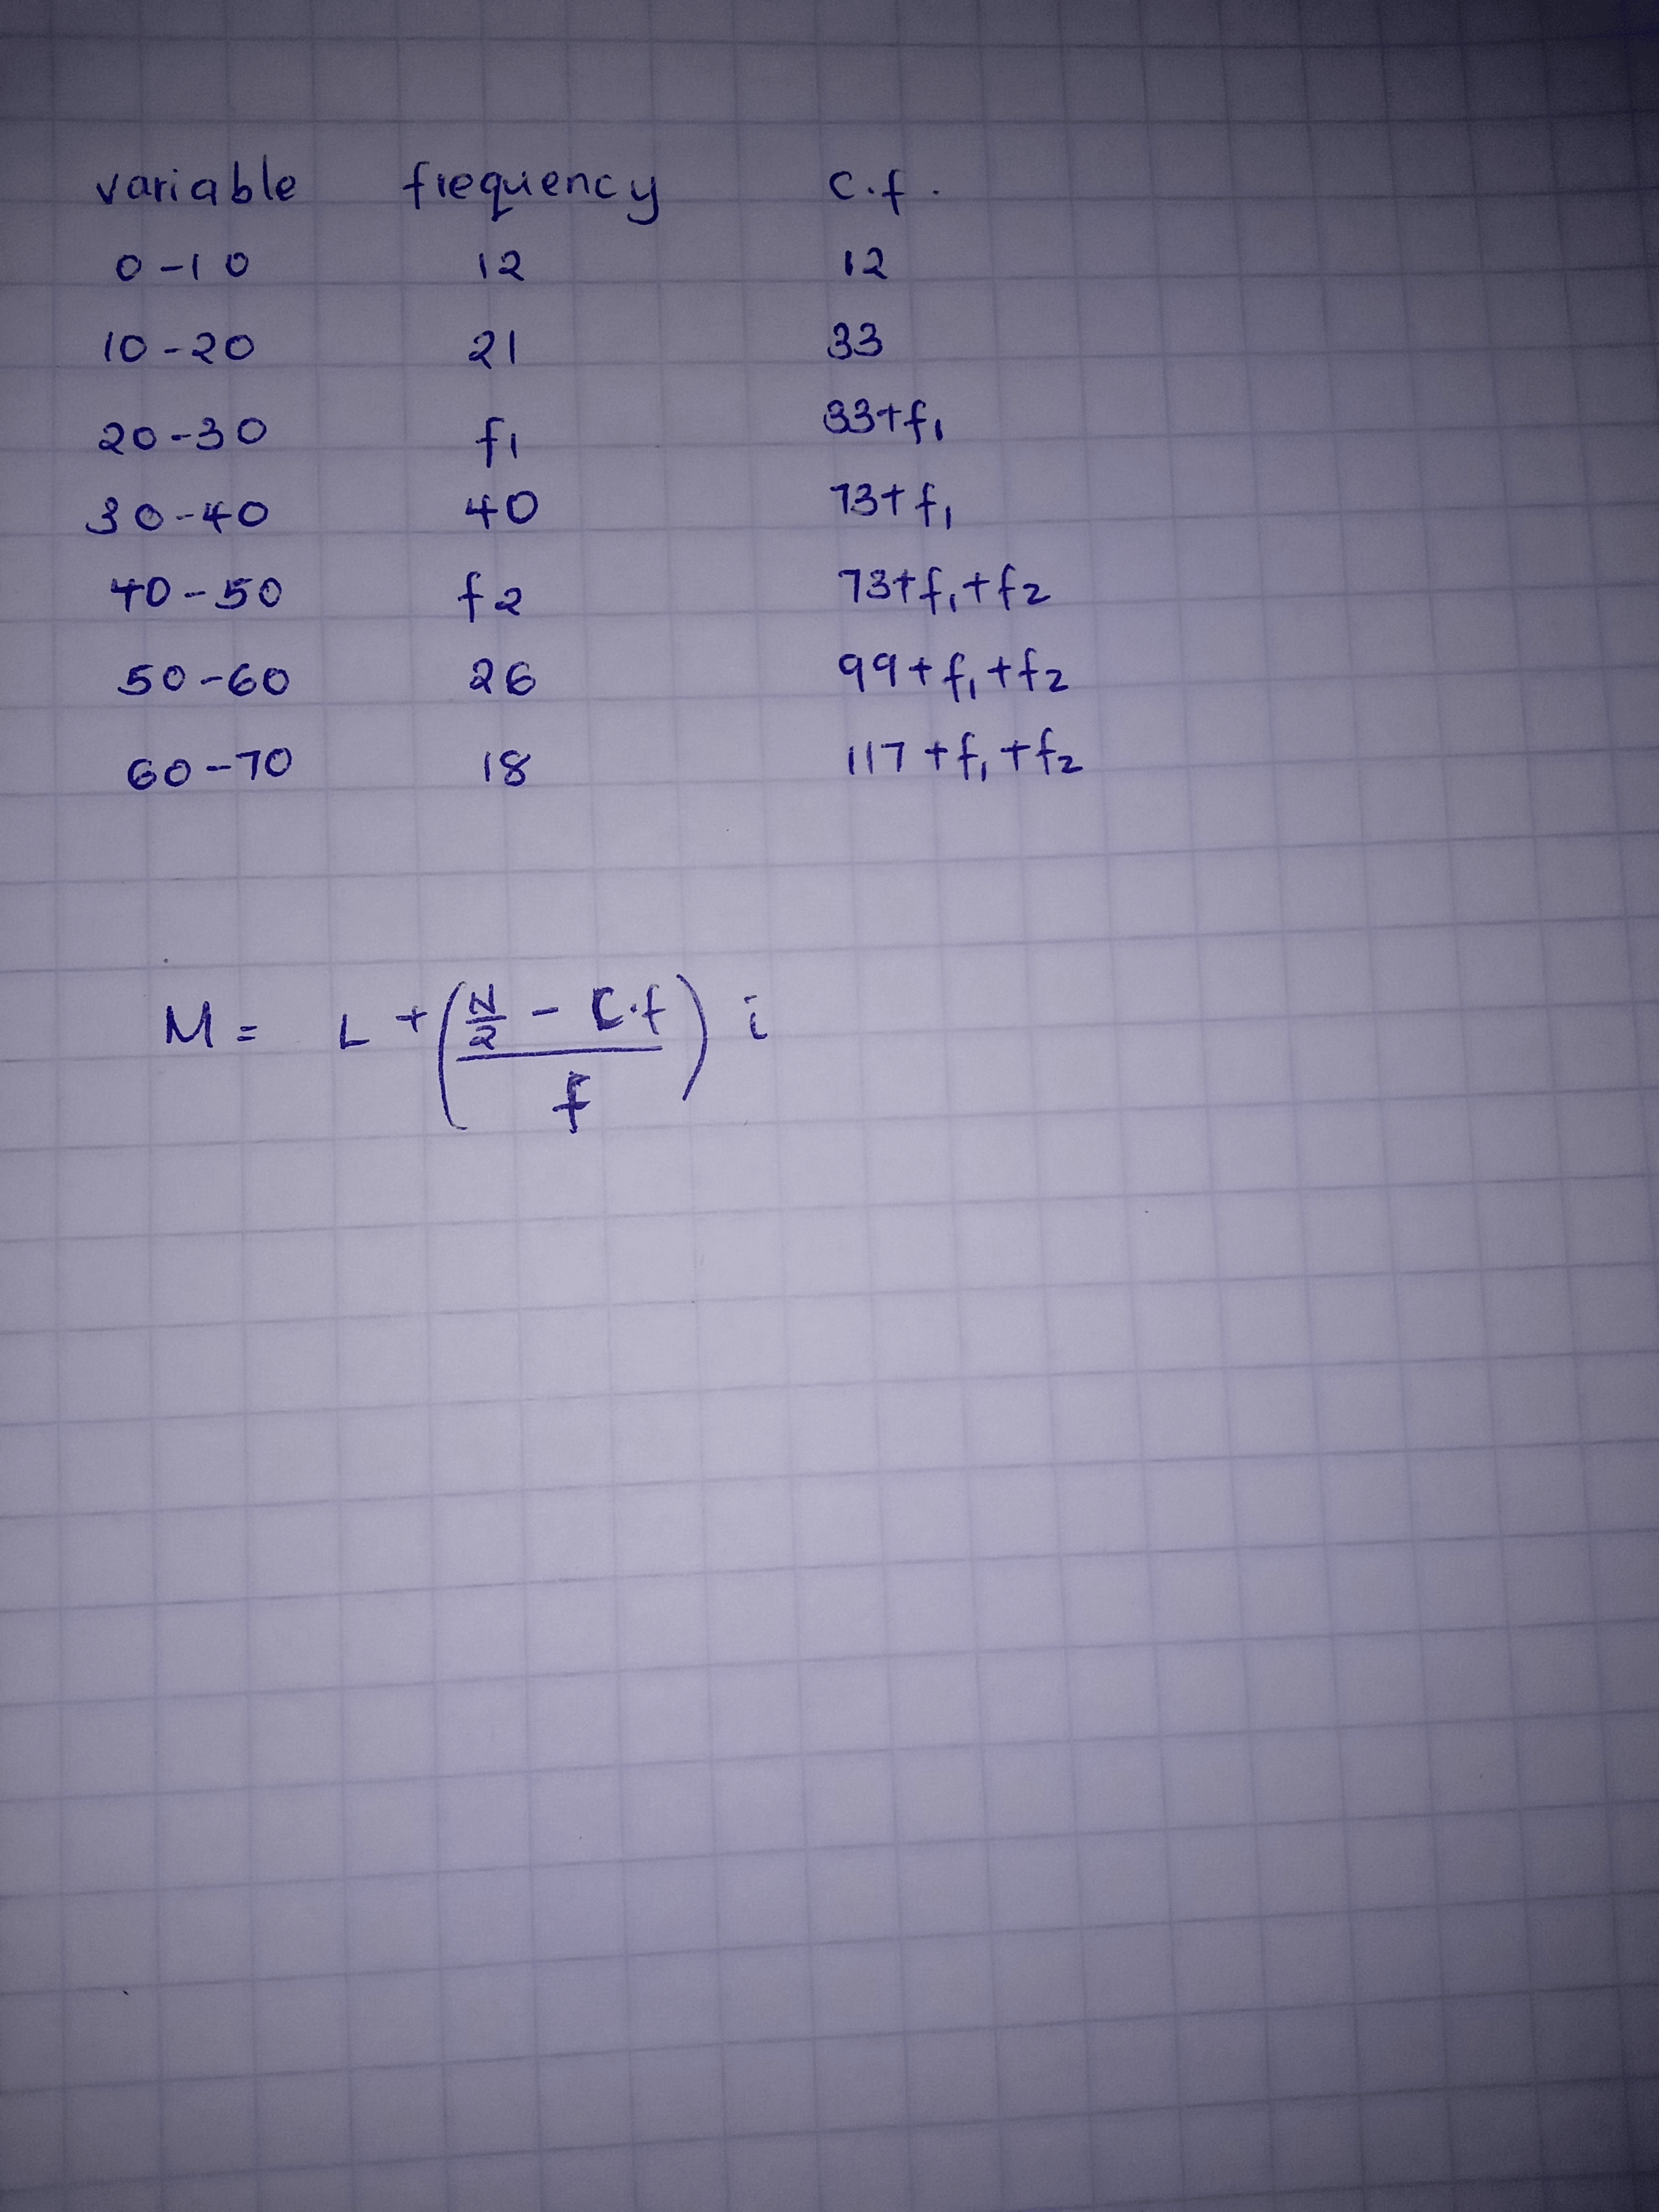 variable frequency c.f.
0-10 12 12
10-20 21 33
20-30 f1 33+f1
30-40 40 73+f1
40-50 f2 73+f1+f2
50-60 26 99+f1+f2
60-70 18 117+f1+f2
M = L + ((N/2 - C.f)/f) i